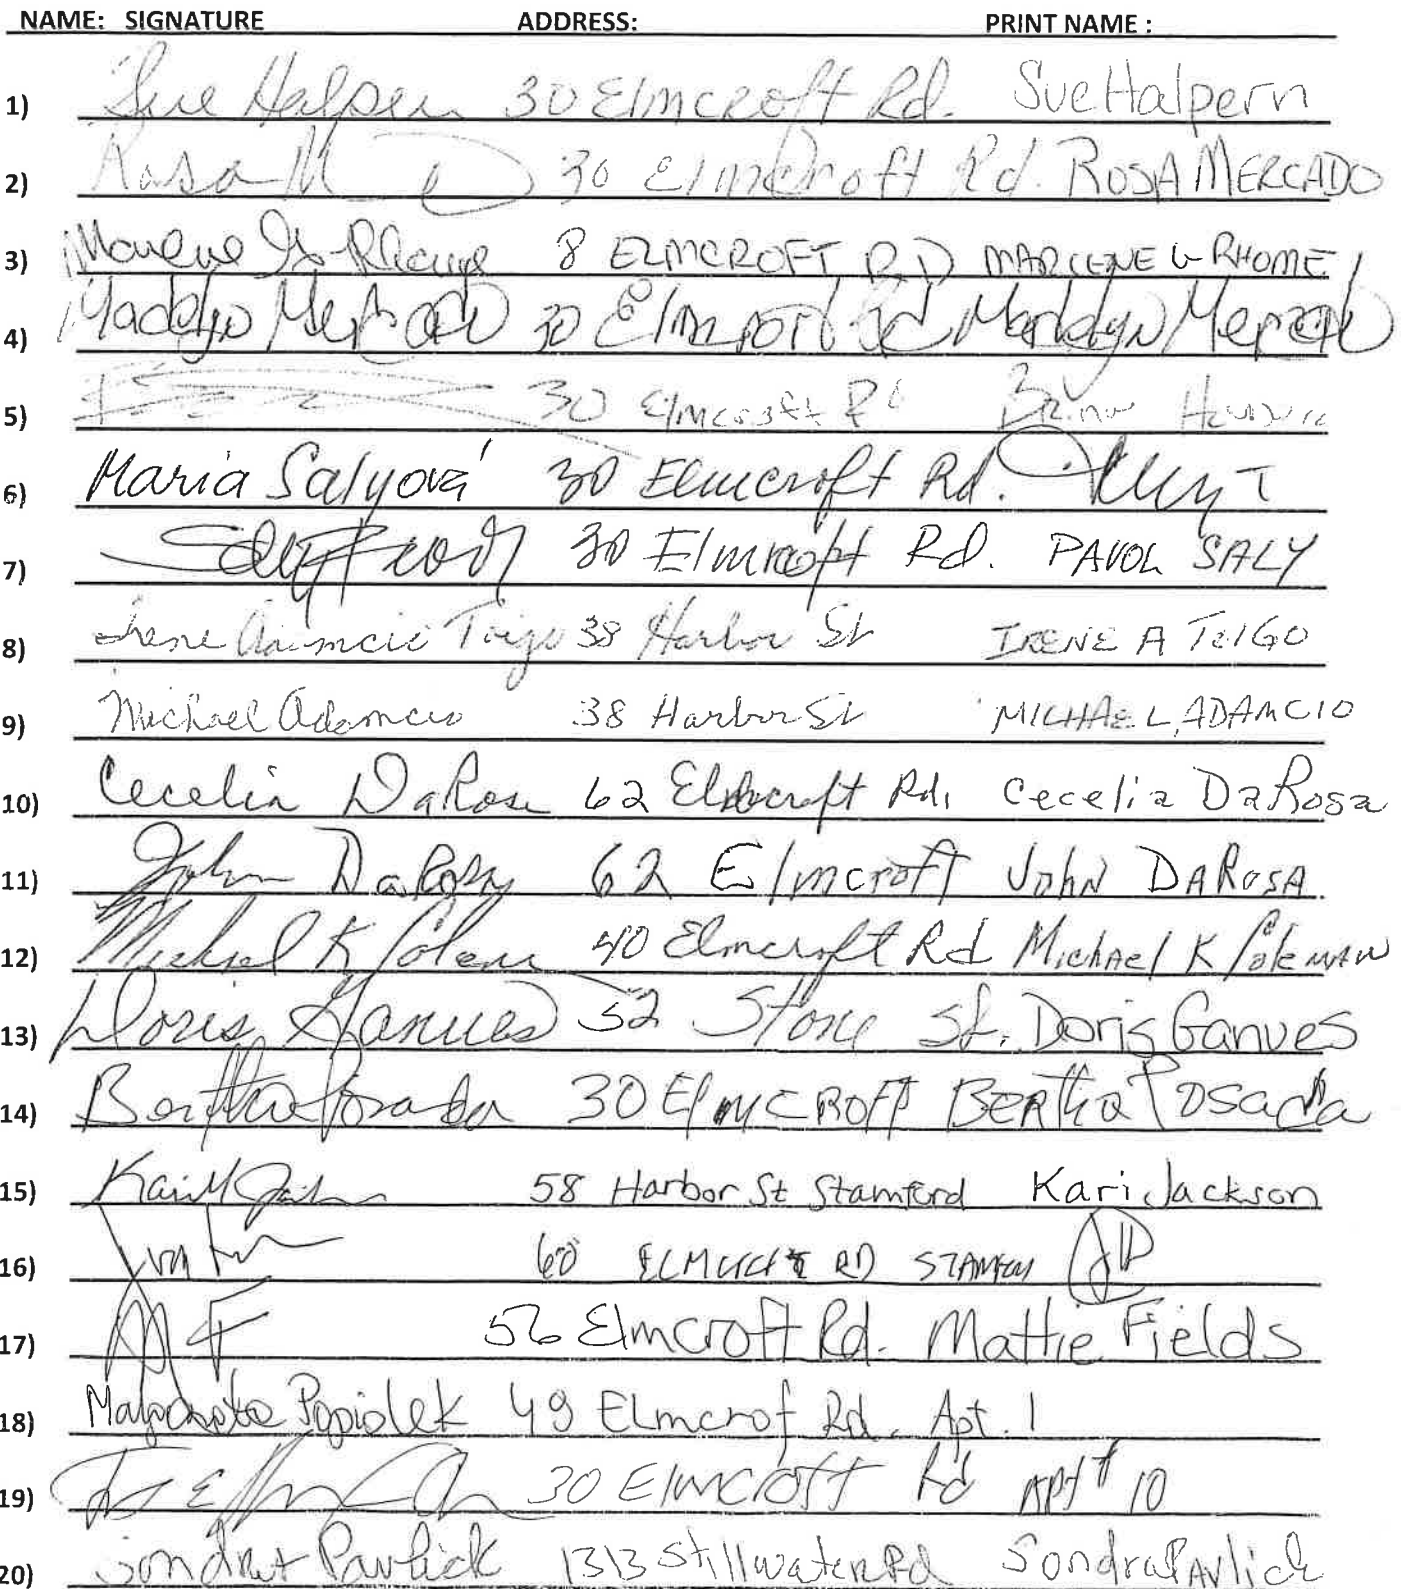 NAME: SIGNATURE ADDRESS: PRINT NAME :
1) Sue Halpern 30 Elmcroft Rd. Sue Halpern
2) Rosa M 30 Elmcroft Rd. ROSA MERCADO
3) Marlene G. Rhome 8 ELMCROFT RD MARLENE G RHOME
4) Madelyn Mercado 30 Elmcroft Rd Madelyn Mercado
5) 30 Elmcroft Rd
6) Maria Salyová 30 Elmcroft Rd.
7) 30 Elmcroft Rd. PAVOL SALY
8) Irene Adamcio Toigo 38 Harbor St IRENE A TOIGO
9) Michael Adamcio 38 Harbor St MICHAEL ADAMCIO
10) Cecelia DaRosa 62 Elmcroft Rd. Cecelia DaRosa
11) John DaRosa 62 Elmcroft John DaRosa.
12) Michael K Coleman 40 Elmcroft Rd Michael K Coleman
13) Doris Ganues 52 Stone St. Doris Ganues
14) Bertha Posada 30 ElmCROFT BERTha Posada
15) Kari Jackson 58 Harbor St Stamford Kari Jackson
16) 60 RD
17) MF 56 Elmcroft Rd. Mattie Fields
18) Malgorzata Popiolek 49 Elmcrof Rd. Apt. 1
19) 30 Elmcroft Rd Apt # 10
20) Sondra Pavlick 1313 Stillwater Rd Sondra Pavlick